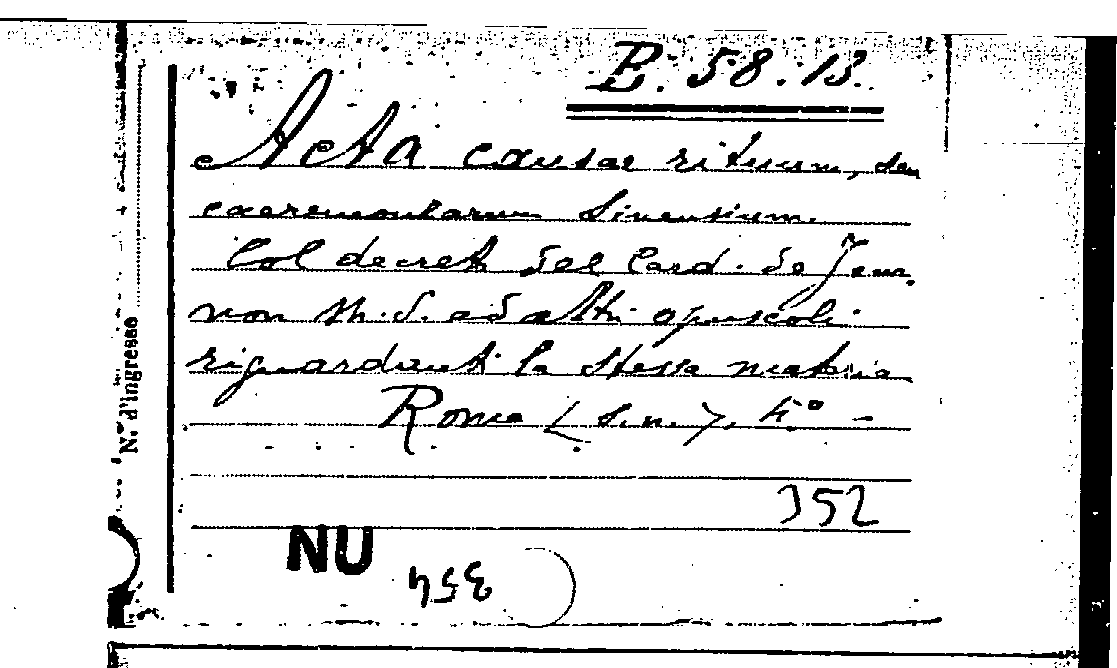 B. 58. 13.
Acta causae rituum, seu
caeremoniarum Sinensium.
Col decreto del Card. de Tour
non M.S. ed altri opuscoli
riguardanti la stessa materia
Roma (s. n.), 4° -
352
NU
354
N.° d'ingresso